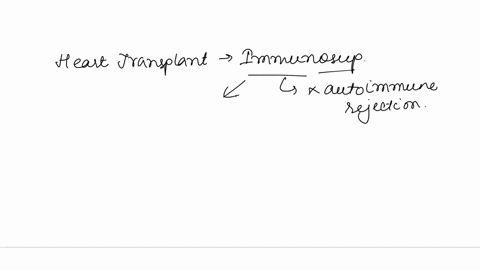 Heart Transplant → Immunosup.
↙ ↳ × autoimmune
rejection.